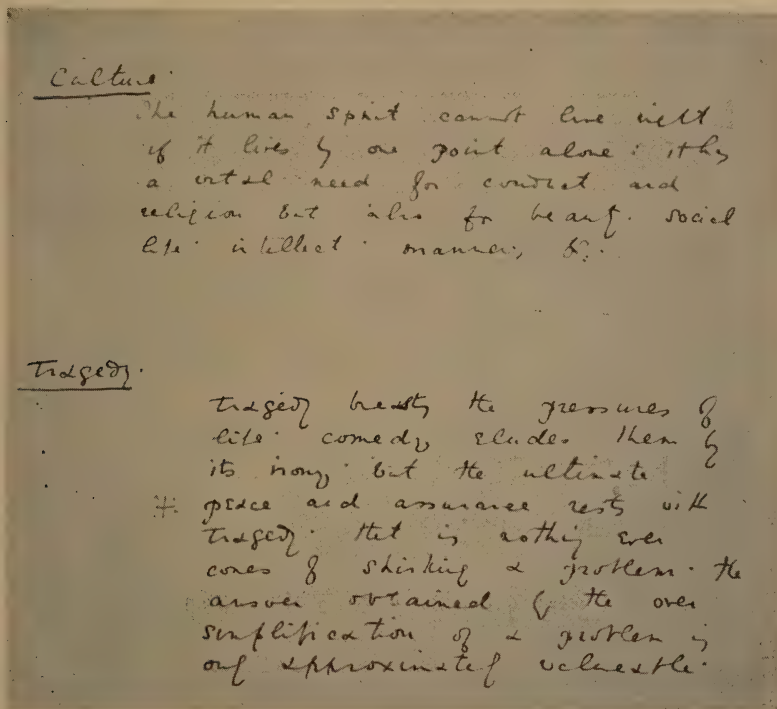 Culture.
The human spirit cannot live right
if it lives by one point alone: it has
a vital need for conduct and
religion but also for beauty. social
life. intellect. manners, &c.
Tragedy.
Tragedy breasts the pressures of
life. comedy eludes them by
its irony. but the ultimate
peace and assurance rests with
Tragedy. that is nothing ever
comes of shirking a problem. the
answer obtained by the over
simplification of a problem is
only approximately valuable.